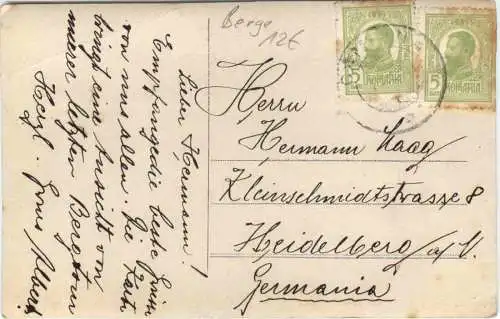 Berge
12€
5
ROMANIA
5
ROMANIA
Lieber Hermann!
Empfange die beste Grüße
von uns allen. Die Karte
bringt eine Ansicht von
meiner letzten Bergtour
Herzl. Gruss Albert
Herrn
Hermann Haag
Kleinschmidtstrasse 8
Heidelberg a/N.
Germania